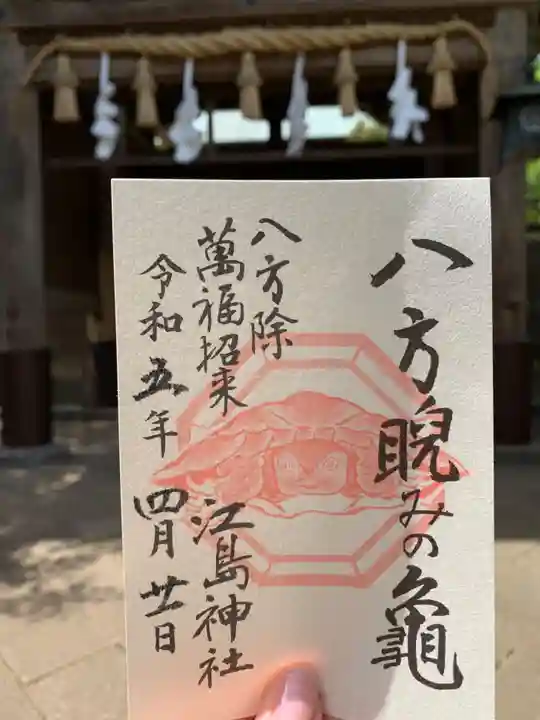 八方睨みの龜
八方除
萬福招来
江島神社
令和五年四月廿一日